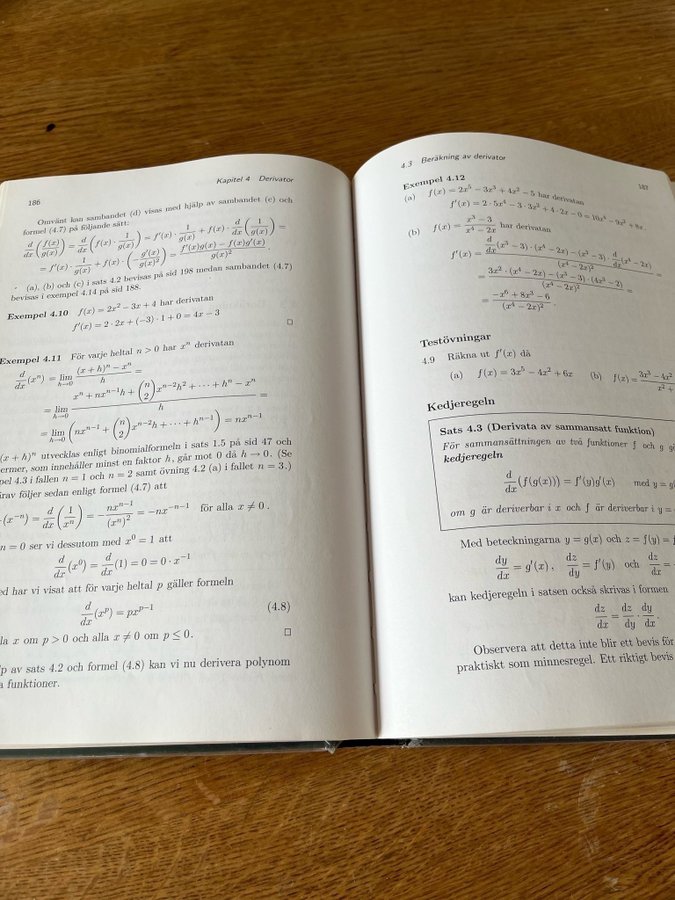 186
Kapitel 4 Derivator
Omvänt kan sambandet (d) visas med hjälp av sambandet (c) och
formel (4.7) på följande sätt:
d/dx (f(x)/g(x)) = d/dx (f(x) · 1/g(x)) = f'(x) · 1/g(x) + f(x) · d/dx (1/g(x)) =
= f'(x) · 1/g(x) + f(x) · (−g'(x)/g(x)²) = (f'(x)g(x) − f(x)g'(x))/g(x)² .
(a), (b) och (c) i sats 4.2 bevisas på sid 198 medan sambandet (4.7)
bevisas i exempel 4.14 på sid 188.
Exempel 4.10 f(x) = 2x² − 3x + 4 har derivatan
f'(x) = 2 · 2x + (−3) · 1 + 0 = 4x − 3 □
Exempel 4.11 För varje heltal n > 0 har xⁿ derivatan
d/dx (xⁿ) = lim h→0 ((x + h)ⁿ − xⁿ)/h =
= lim h→0 (xⁿ + nxⁿ⁻¹h + (n 2)xⁿ⁻²h² + ··· + hⁿ − xⁿ)/h =
= lim h→0 (nxⁿ⁻¹ + (n 2)xⁿ⁻²h + ··· + hⁿ⁻¹) = nxⁿ⁻¹
(x + h)ⁿ utvecklas enligt binomialformeln i sats 1.5 på sid 47 och
ermer, som innehåller minst en faktor h, går mot 0 då h → 0. (Se
pel 4.3 i fallen n = 1 och n = 2 samt övning 4.2 (a) i fallet n = 3.)
ärav följer sedan enligt formel (4.7) att
(x⁻ⁿ) = d/dx (1/xⁿ) = −nxⁿ⁻¹/(xⁿ)² = −nx⁻ⁿ⁻¹ för alla x ≠ 0.
n = 0 ser vi dessutom med x⁰ = 1 att
d/dx (x⁰) = d/dx (1) = 0 = 0 · x⁻¹
ed har vi visat att för varje heltal p gäller formeln
d/dx (xᵖ) = pxᵖ⁻¹ (4.8)
la x om p > 0 och alla x ≠ 0 om p ≤ 0. □
lp av sats 4.2 och formel (4.8) kan vi nu derivera polynom
a funktioner.
4.3 Beräkning av derivator
187
Exempel 4.12
(a) f(x) = 2x⁵ − 3x³ + 4x² − 5 har derivatan
f'(x) = 2 · 5x⁴ − 3 · 3x² + 4 · 2x − 0 = 10x⁴ − 9x² + 8x.
(b) f(x) = (x³ − 3)/(x⁴ − 2x) har derivatan
f'(x) = (d/dx (x³ − 3) · (x⁴ − 2x) − (x³ − 3) · d/dx (x⁴ − 2x))/(x⁴ − 2x)² =
= (3x² · (x⁴ − 2x) − (x³ − 3) · (4x³ − 2))/(x⁴ − 2x)² =
= (−x⁶ + 8x³ − 6)/(x⁴ − 2x)² .
Testövningar
4.9 Räkna ut f'(x) då
(a) f(x) = 3x⁵ − 4x² + 6x (b) f(x) = (3x³ − 4x²)/(x² +
Kedjeregeln
Sats 4.3 (Derivata av sammansatt funktion)
För sammansättningen av två funktioner f och g
kedjeregeln
d/dx (f(g(x))) = f'(y)g'(x) med y = g(
om g är deriverbar i x och f är deriverbar i y =
Med beteckningarna y = g(x) och z = f(y) =
dy/dx = g'(x), dz/dy = f'(y) och dz/dx =
kan kedjeregeln i satsen också skrivas i formen
dz/dx = dz/dy · dy/dx .
Observera att detta inte blir ett bevis för
praktiskt som minnesregel. Ett riktigt bevis